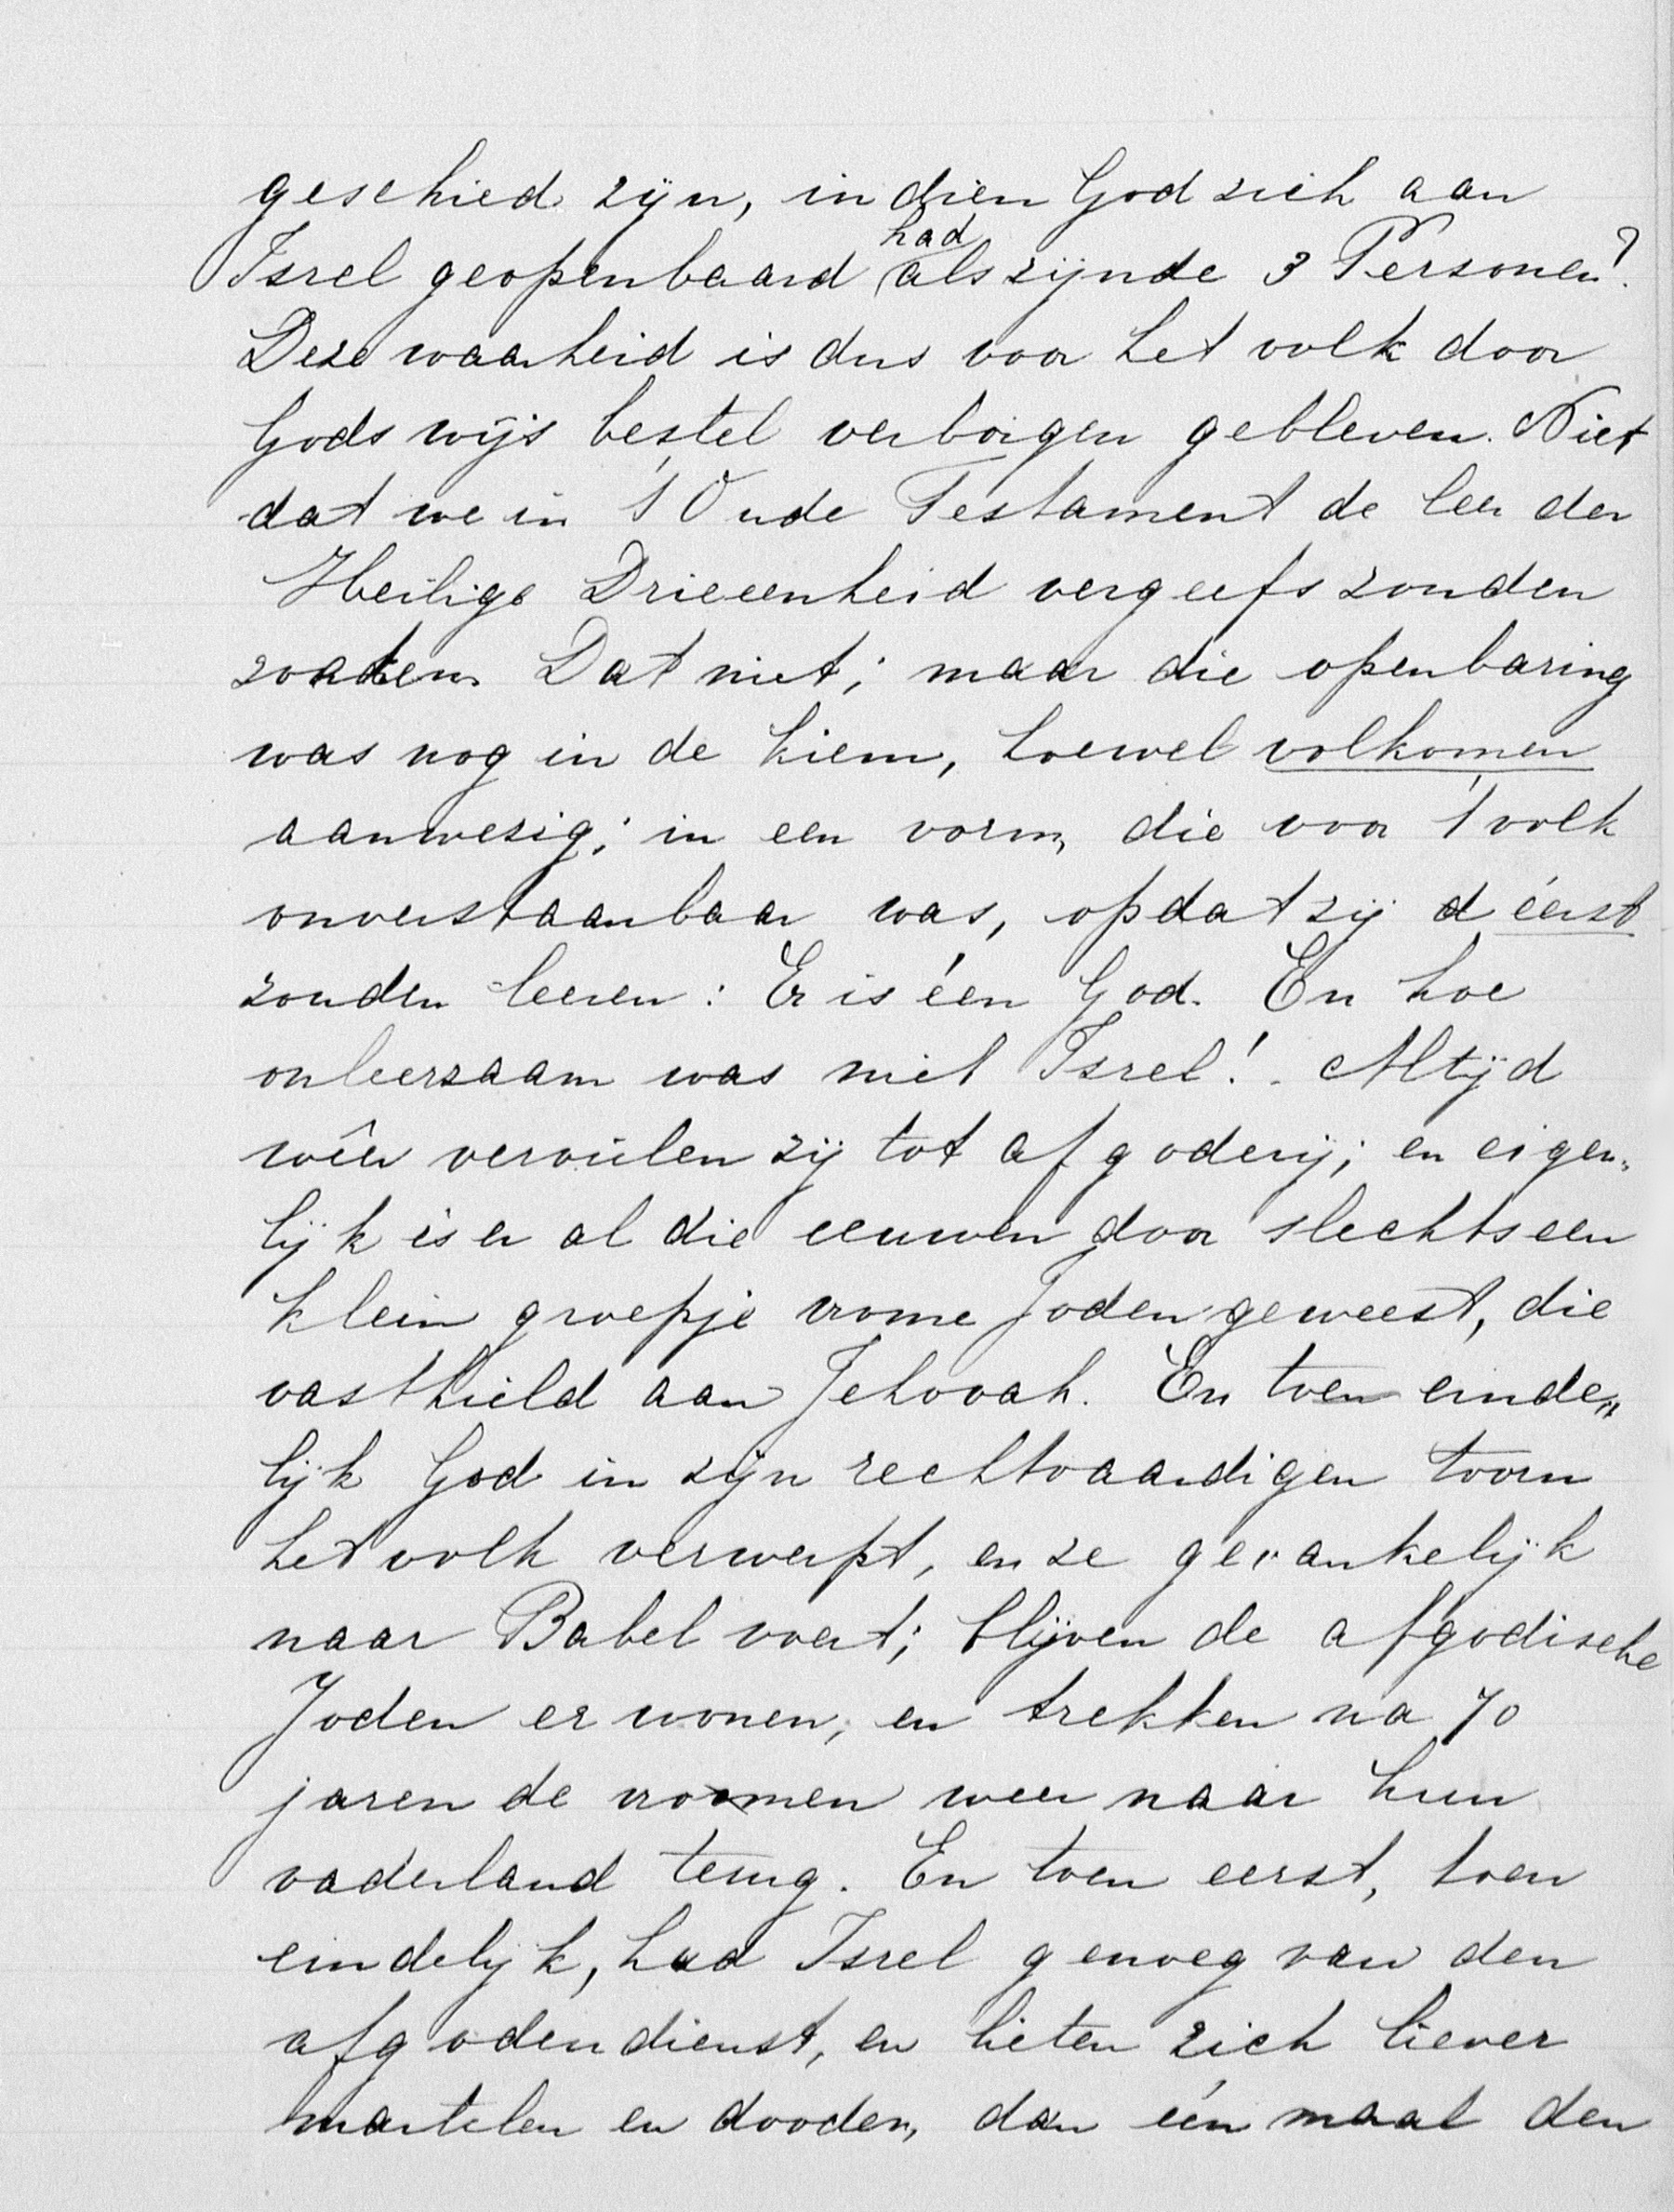 geschied zijn, indien God zich aan
had
Isrel geopenbaard als zijnde 3 Personen?
Deze waarheid is dus voor het volk door
Gods wijs bestel verborgen gebleven. Niet
dat we in 't Oude Testament de leer der
Heilige Drieeenheid vergeefs zouden
zoeken. Dat niet; maar die openbaring
was nog in de kiem, hoewel volkomen
aanwezig; in een vorm, die voor 't volk
onverstaanbaar was, opdat zij d éérst
zouden leeren: Er is één God. En hoe
onleerzaam was niet Isrel! Altijd
wêer vervielen zij tot afgoderij; en eigen„
lijk is er al die eeuwen door slechts een
klein groepje vrome Joden geweest, die
vasthield aan Jehovah. En toen einde„
lijk God in zijn rechtvaardigen toorn
het volk verwerpt, en ze gevankelijk
naar Babel voert; blijven de afgodische
Joden er wonen, en trekken na 70
jaren de vroomen weer naar hun
vaderland terug. En toen eerst, toen
eindelijk, had Isrel genoeg van den
afgodendienst, en lieten zich liever
martelen en dooden, dan één maal den